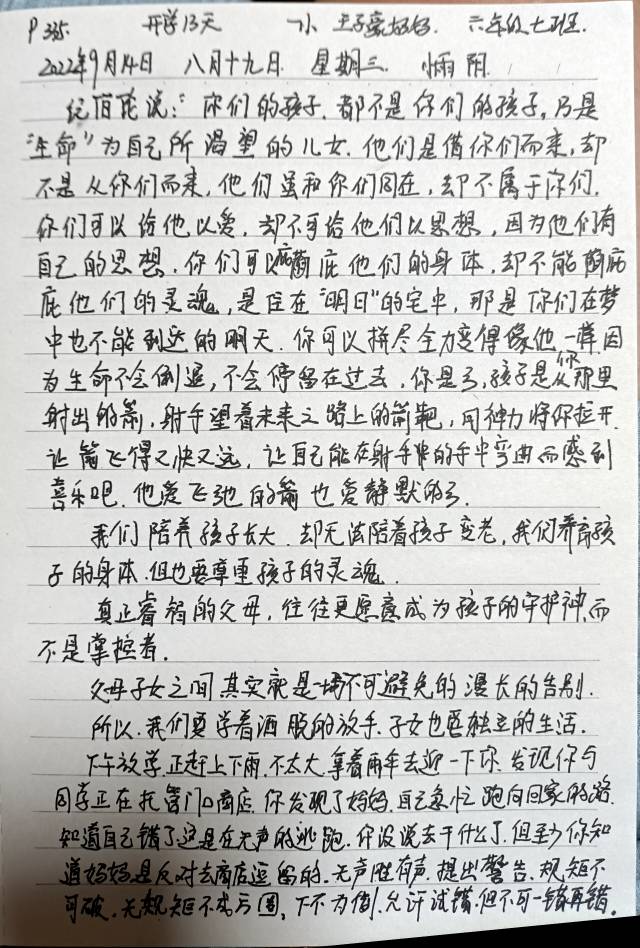 P 335. 开学13天 小 王子豪妈妈. 六年级七班.
2022年9月14日 八月十九日. 星期三. 小雨 阴.
纪伯伦说:“你们的孩子.都不是你们的孩子,乃是
“生命”为自己所渴望的儿女.他们是借你们而来,却
不是从你们而来,他们虽和你们同在,却不属于你们.
你们可以给他以爱,却不可给他们以思想,因为他们有
自己的思想.你们可以荫庇他们的身体,却不能荫
庇他们的灵魂,是住在“明日”的宅中,那是你们在梦
中也不能到达的明天.你可以拼尽全力变得像他一样因
为生命不会倒退,不会停留在过去,你是弓,孩子是从你那里
射出的箭,射手望着未来之路上的箭靶,用神力将你拉开.
让箭飞得又快又远,让自己能在射手的手中弯曲而感到
喜乐吧.他爱飞弛的箭也爱静默的弓.
我们陪养孩子长大.却无法陪着孩子变老,我们养育孩
子的身体.但也要尊重孩子的灵魂.
真正睿智的父母,往往更愿意成为孩子的守护神,而
不是掌控者.
父母子女之间其实就是一场不可避免的漫长的告别.
所以.我们要学着洒脱的放手.子女也要独立的生活.
下午放学.正赶上下雨.不太大.拿着雨伞去迎一下你.发现你与
同学正在托管门口商店.你发现了妈妈.自己急忙跑向回家的路.
知道自己错了这是在无声的逃跑.你没说去干什么了.但至少你知
道妈妈是反对去商店逗留的.无声胜有声.提出警告.规矩不
可破.无规矩不成方圆,下不为例.允许试错.但不可一错再错.